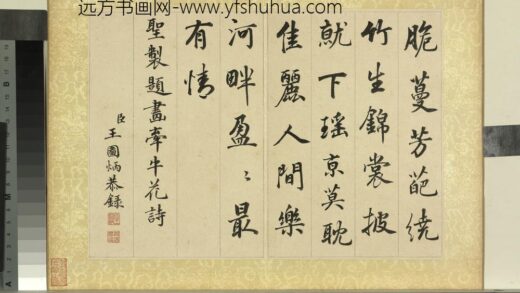 远方书画网-www.yfshuhua.com
脆蔓芳葩繞
竹生錦裳披
就下瑤京莫耽
佳麗人間樂
河畔盈〻最
有情
聖製題畫牽牛花詩
臣王圖炳恭錄